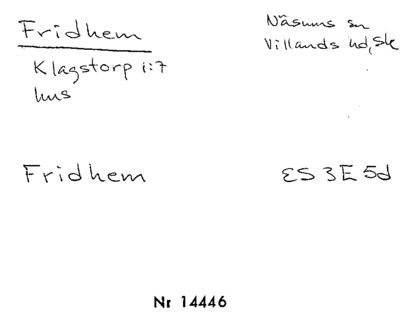 Fridhem
Näsums sn
Villands hd, Sk
Klagstorp 1:7
hus
Fridhem
ES 3E 5d
Nr 14446